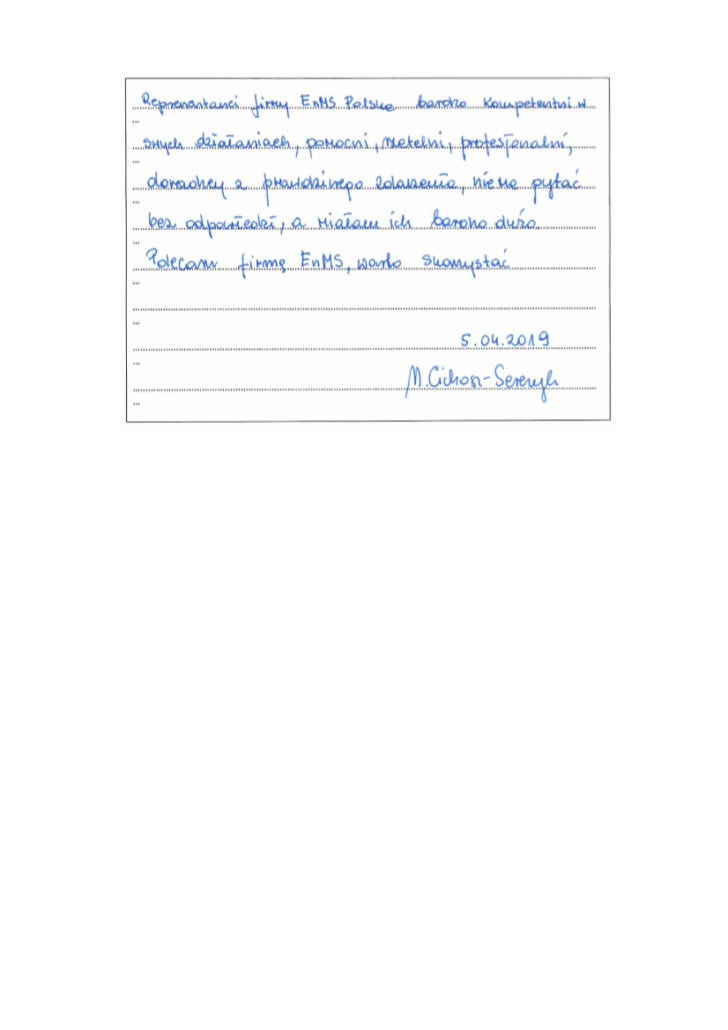 Reprezentanci firmy EnMS Polska bardzo kompetentni w
swych działaniach, pomocni, rzetelni, profesjonalni,
doradcy z prawdziwego zdarzenia, nie ma pytać
bez odpowiedzi, a miałam ich bardzo dużo.
Polecam firmę EnMS, warto skorzystać
5.04.2019
M. Cichon-